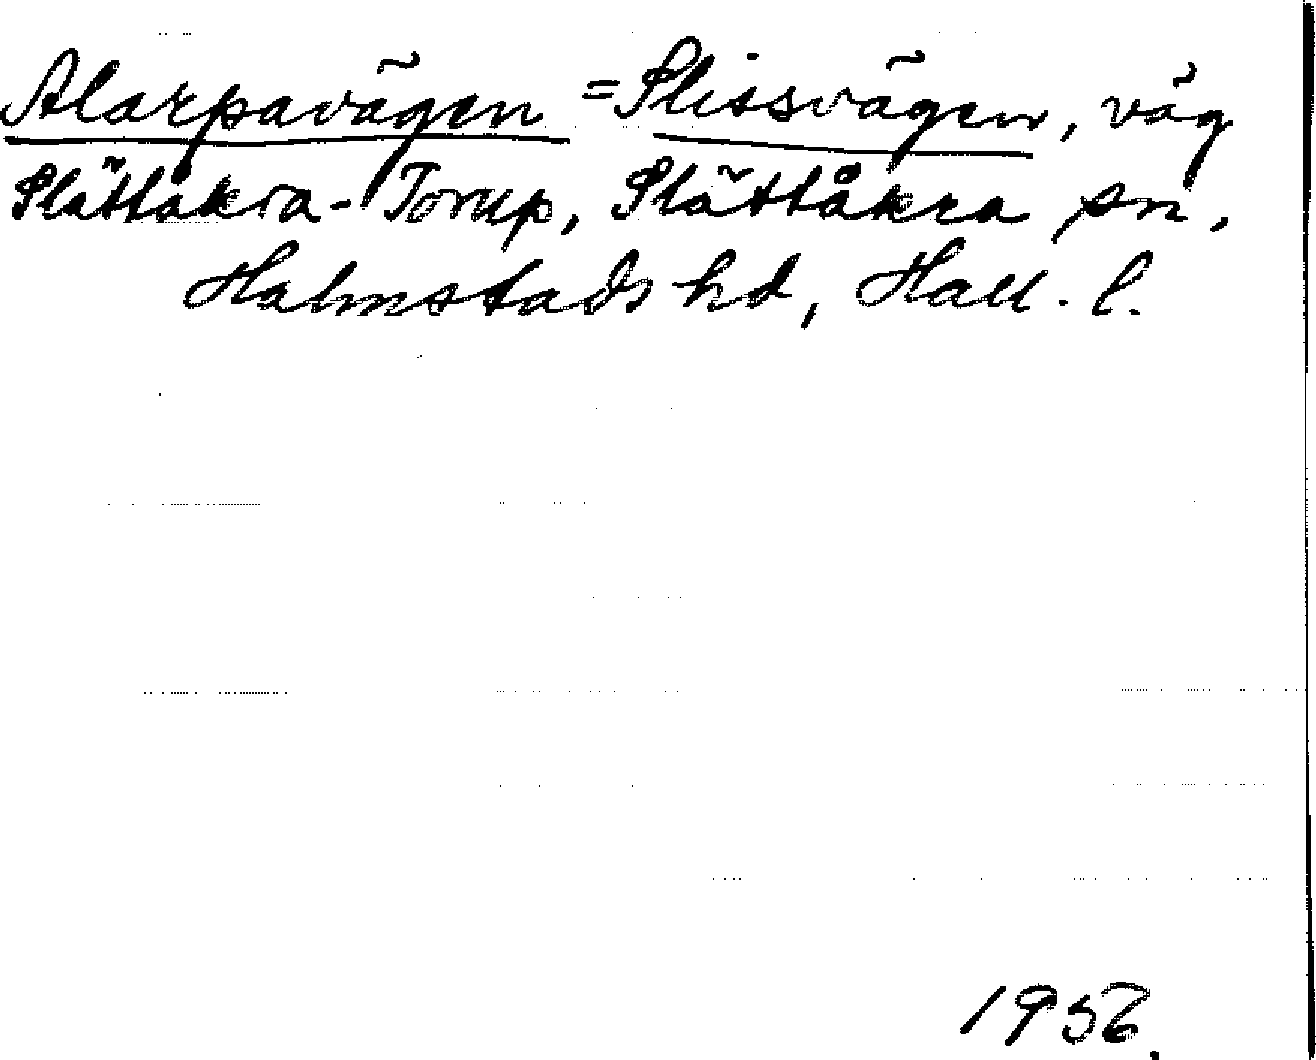 Alarpavägen = Slissvägen, väg
Slättåkra-Torup, Slättåkra sn,
Halmstads hd, Hall. l.
1956.